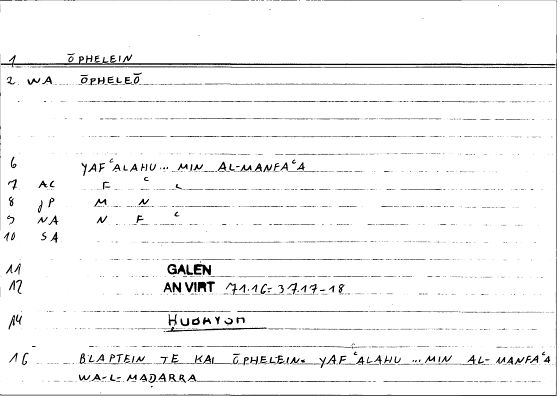 1 ŌPHELEIN
2 WA ŌPHELEŌ
6 YAFʿALAHU... MIN AL-MANFAʿA
7 AC F ʿ L
8 JP M N
9 NA N F ʿ
10 SA
11 GALEN
12 AN VIRT 71.16 = 37.17-18
14 ḤUBAYSH
16 BLAPTEIN TE KAI ŌPHELEIN = YAFʿALAHU ... MIN AL-MANFAʿA
WA-L-MAḌARRA